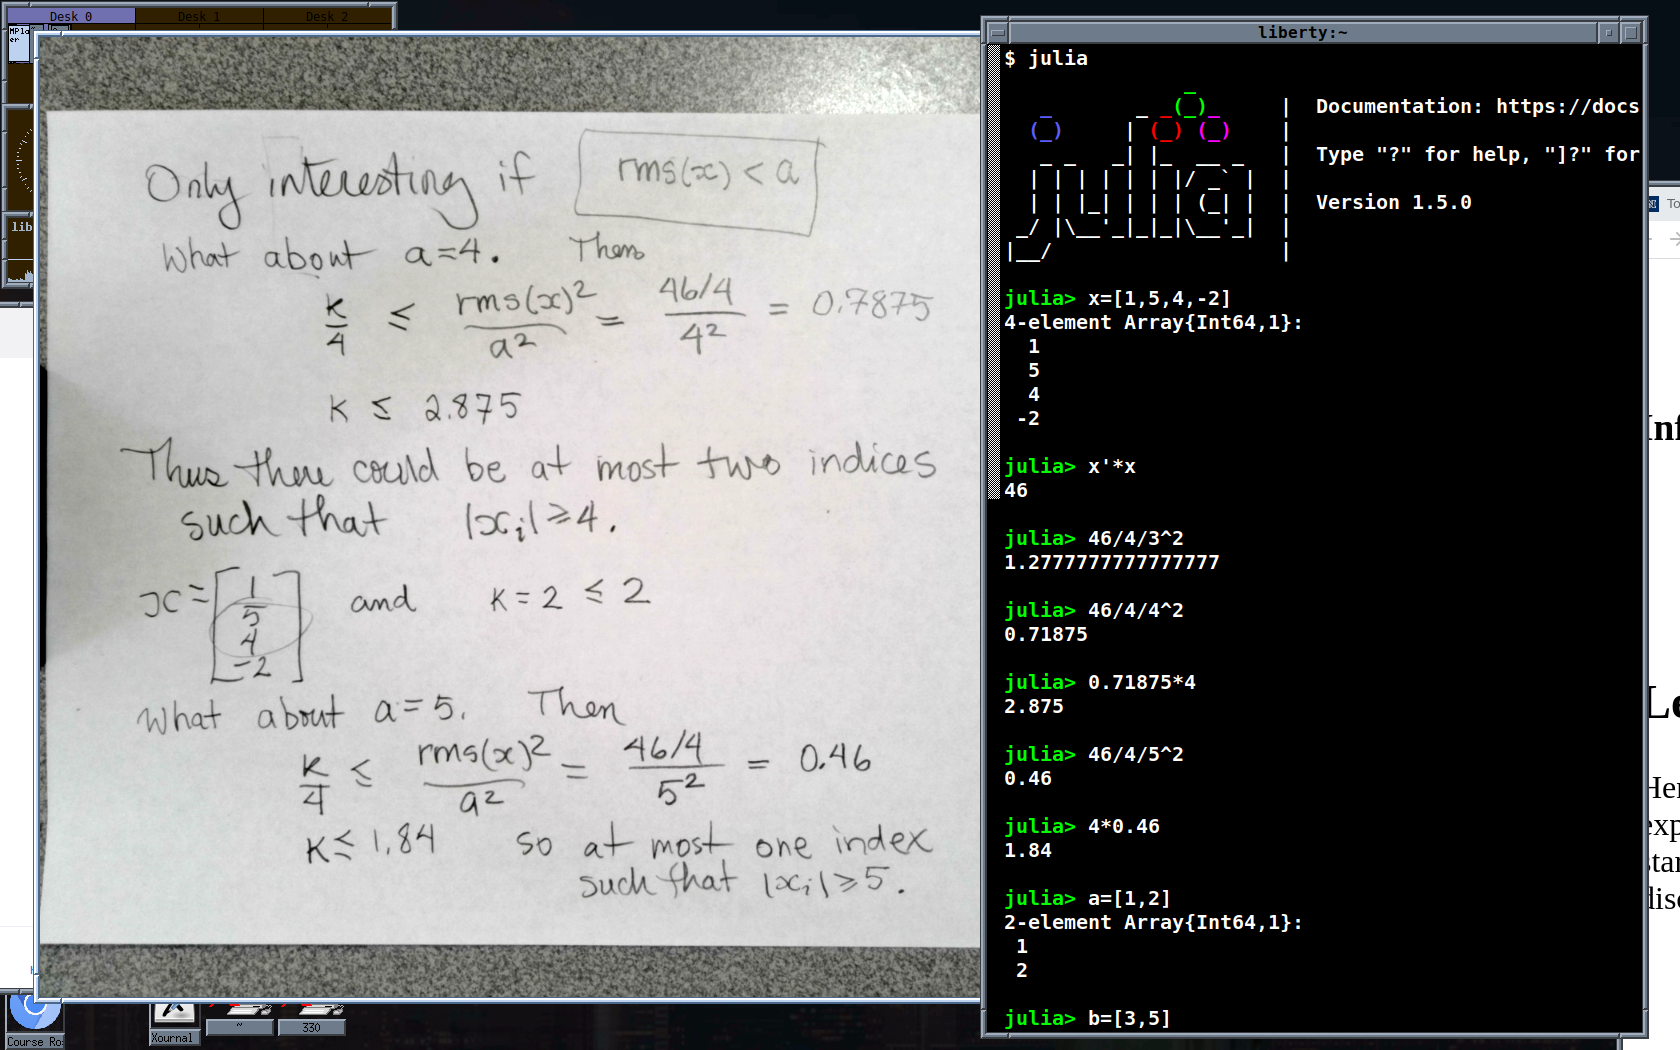 Desk 0 Desk 1 Desk 2
MPla
er
lib
Only interesting if rms(x) < a
What about a=4. Then
K/4 ≤ rms(x)²/a² = 46/4/4² = 0.7875
K ≤ 2.875
Thus there could be at most two indices
such that |xᵢ| ≥ 4.
x = [1 5 4 -2] and K = 2 ≤ 2
What about a=5. Then
K/4 ≤ rms(x)²/a² = 46/4/5² = 0.46
K ≤ 1.84 so at most one index
such that |xᵢ| ≥ 5.
Course Ro
Xournal
~
330
liberty:~
$ julia
Documentation: https://docs
Type "?" for help, "]?" for
Version 1.5.0
julia> x=[1,5,4,-2]
4-element Array{Int64,1}:
1
5
4
-2
julia> x'*x
46
julia> 46/4/3^2
1.2777777777777777
julia> 46/4/4^2
0.71875
julia> 0.71875*4
2.875
julia> 46/4/5^2
0.46
julia> 4*0.46
1.84
julia> a=[1,2]
2-element Array{Int64,1}:
1
2
julia> b=[3,5]
To
Inf
Le
Her
exp
star
disc